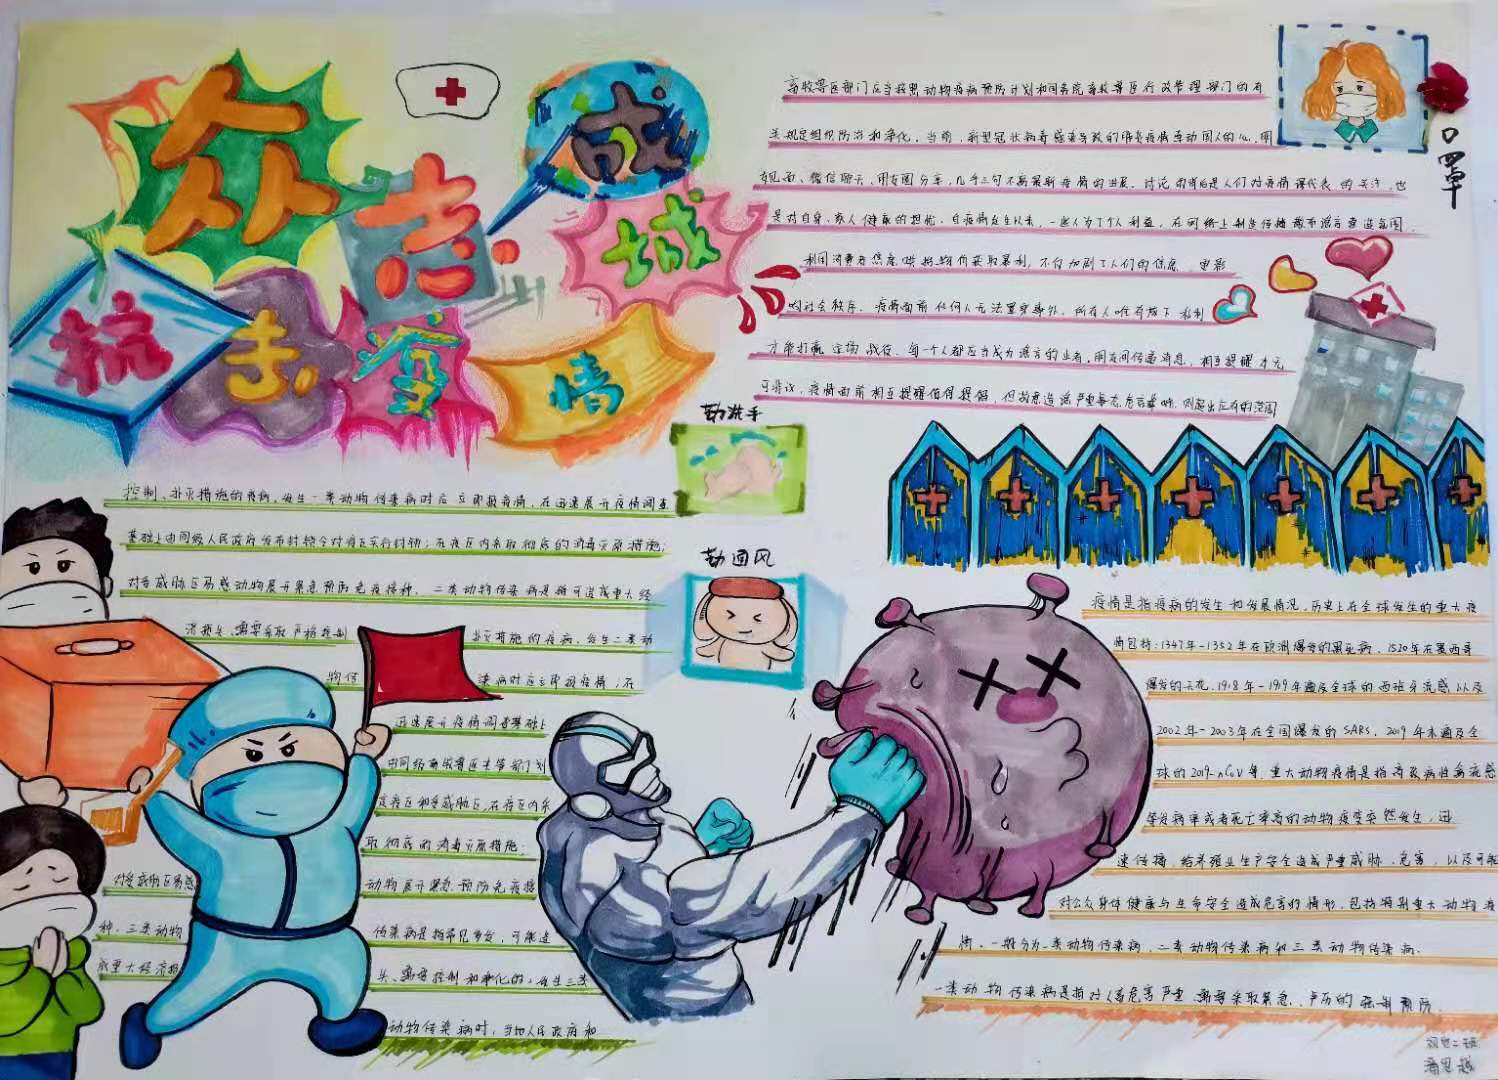 众志成城
抗击疫情
畜牧兽医部门应当按照动物疫病预防计划和国务院畜牧兽医行政管理部门的有
关规定组织防治和净化。当前,新型冠状病毒感染导致的肺炎疫情牵动国人的心,朋
友见面、微信聊天、朋友圈分享,几乎三句不离最新疫情的进展。讨论的背后是人们对疫情 的关注,也
是对自身、家人健康的担忧。自疫情发生以来,一些人为了个人利益,在网络上制造传播散布谣言
利用消费者 获取暴利,不仅加剧了人们的焦虑
社会秩序。疫情面前任何人无法置身事外,所有人唯有放下私利
才能打赢这场战役。每一个人都应当成为谣言的 ,朋友间传递消息,相互提醒
可非议。疫情面前相互提醒值得提倡,但
口罩
勤洗手
控制、扑灭措施的疾病,发生一类动物传染病时应立即报疫情,在迅速展开疫情调查
基础上由同级人民政府发布封锁令对疫区实行封锁;在疫区内采取彻底的消毒灭原措施;
对受威胁区易感动物展开紧急预防免疫接种。二类动物传染病是指可造成重大经
济损失、需要采取严格控制 扑灭措施的疾病,发生二类动
物传 染病时应立即报疫情,在
迅速展开疫情调查基础上
由同级畜牧兽医主管部门划
定疫区和受威胁区,在疫区内采
取彻底的消毒灭原措施;
对受威胁区易感 动物展开紧急预防免疫接
种。三类动物 传染病是指常见多发,可能造
成重大经济损 失、需要控制和净化的,发生三类
动物传染病时,当地人民政府和
勤通风
疫情是指疫病的发生和发展情况,历史上在全球发生的重大疫
情包括:1347年-1352年在欧洲爆发的黑死病,1520年在墨西哥
爆发的天花,1918年-1919年遍及全球的西班牙流感以及
2002年-2003年在全国爆发的SARS,2019年末遍及全
球的2019-nCoV等,重大动物疫情是指高致病性禽流感
等发病率或者死亡率高的动物疫病突然发生,迅
速传播,给养殖业生产安全造成严重威胁、危害,以及可能
对公众身体健康与生命安全造成危害的情形,包括特别重大动物疫
情。一般分为一类动物传染病,二类动物传染病和三类动物传染病。
一类动物传染病是指对人畜危害严重、需要采取紧急、严厉的强制预防